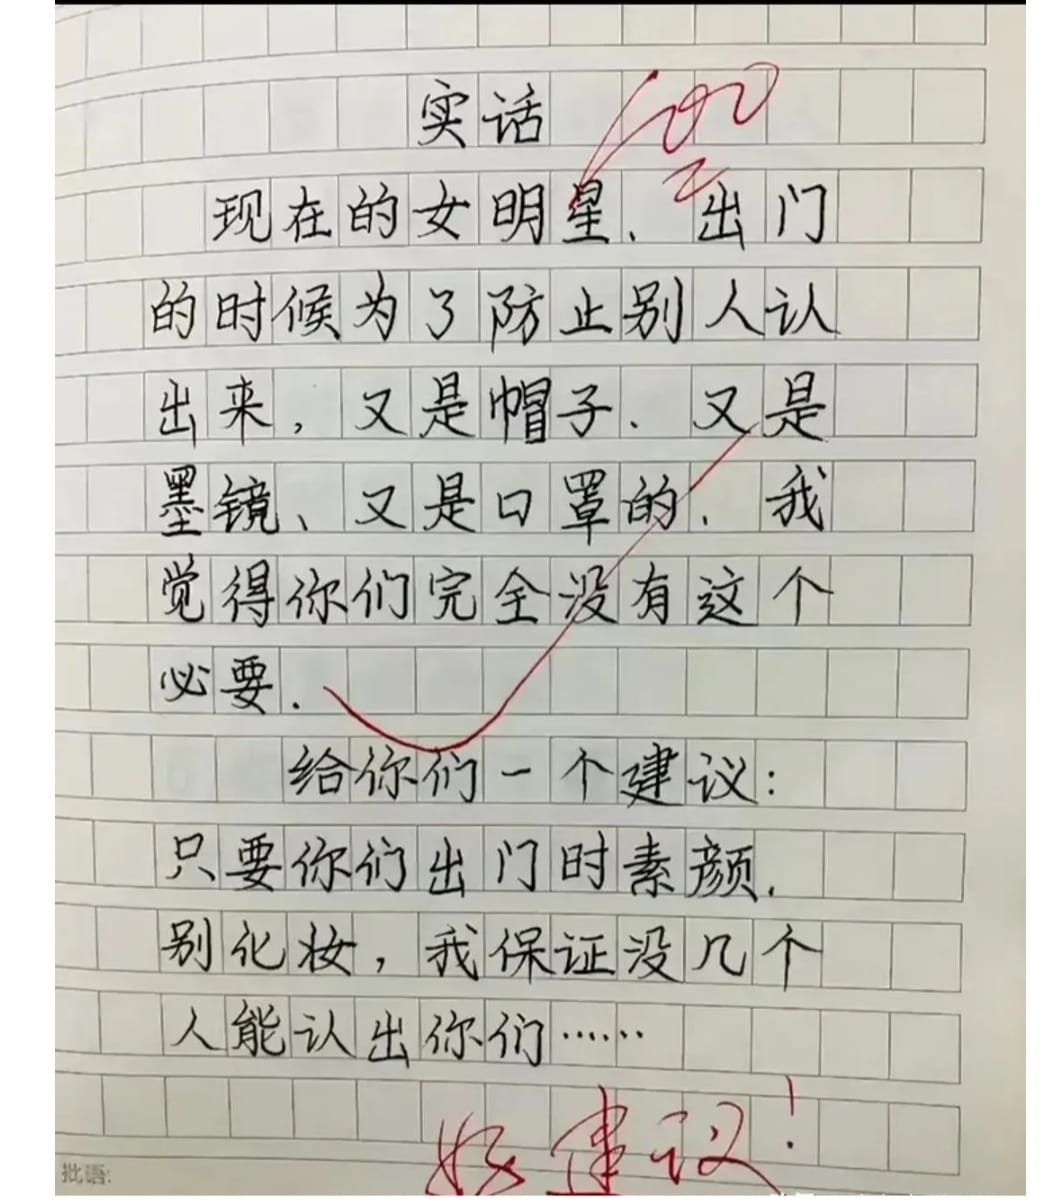 实话
100
现在的女明星、出门
的时候为了防止别人认
出来,又是帽子.又是
墨镜、又是口罩的.我
觉得你们完全没有这个
必要.
给你们一个建议:
只要你们出门时素颜.
别化妆,我保证没几个
人能认出你们……
好建议!
批语: